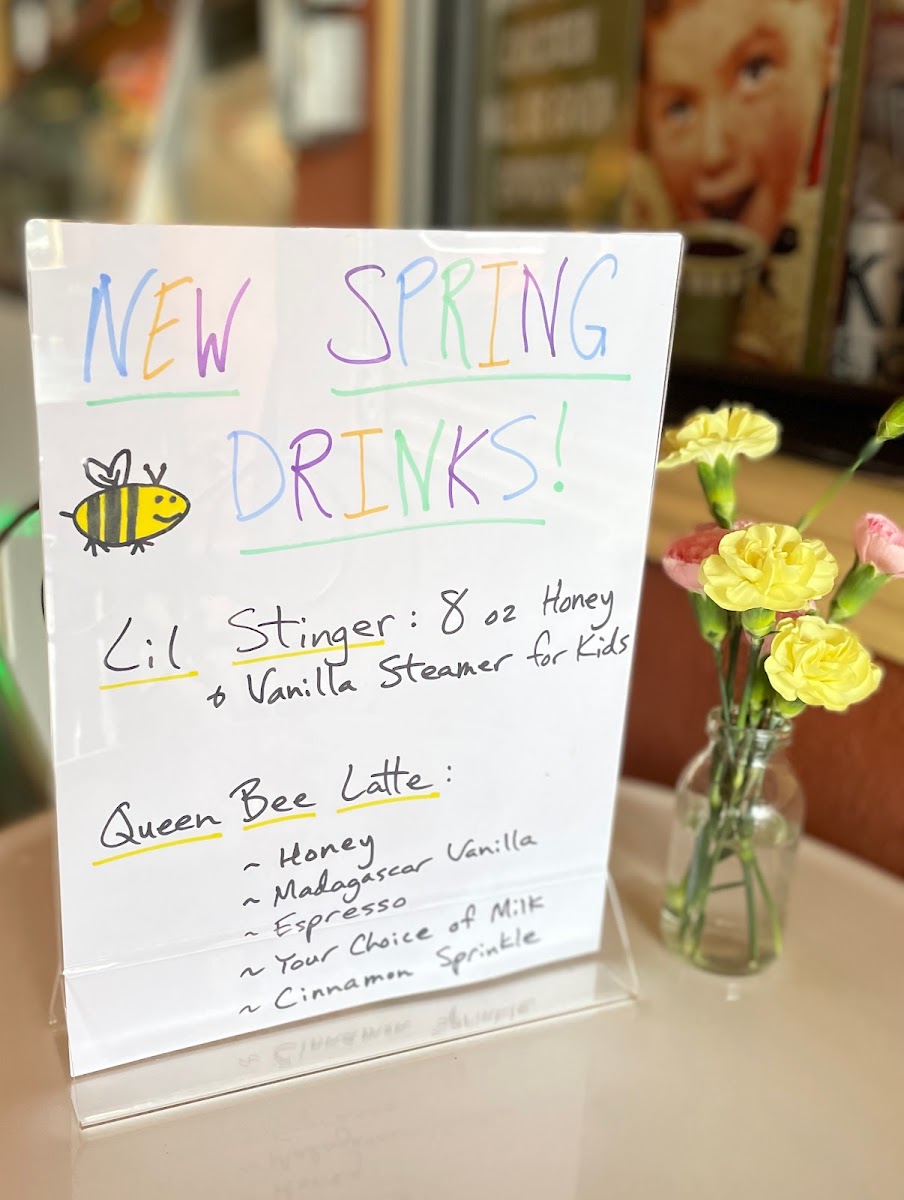 NEW SPRING
DRINKS!
Lil Stinger: 8 oz Honey
& Vanilla Steamer for Kids
Queen Bee Latte:
~ Honey
~ Madagascar Vanilla
~ Espresso
~ Your Choice of Milk
~ Cinnamon Sprinkle